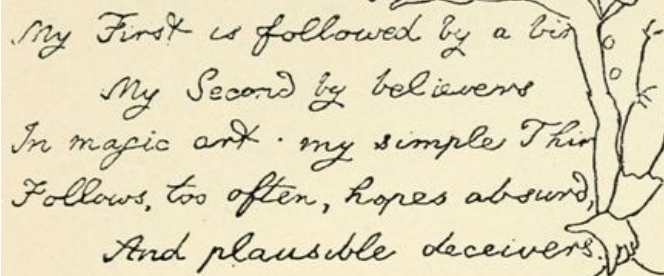 My First is followed by a bird
My Second by believers
In magic art · my simple Third
Follows, too often, hopes absurd,
And plausible deceivers.